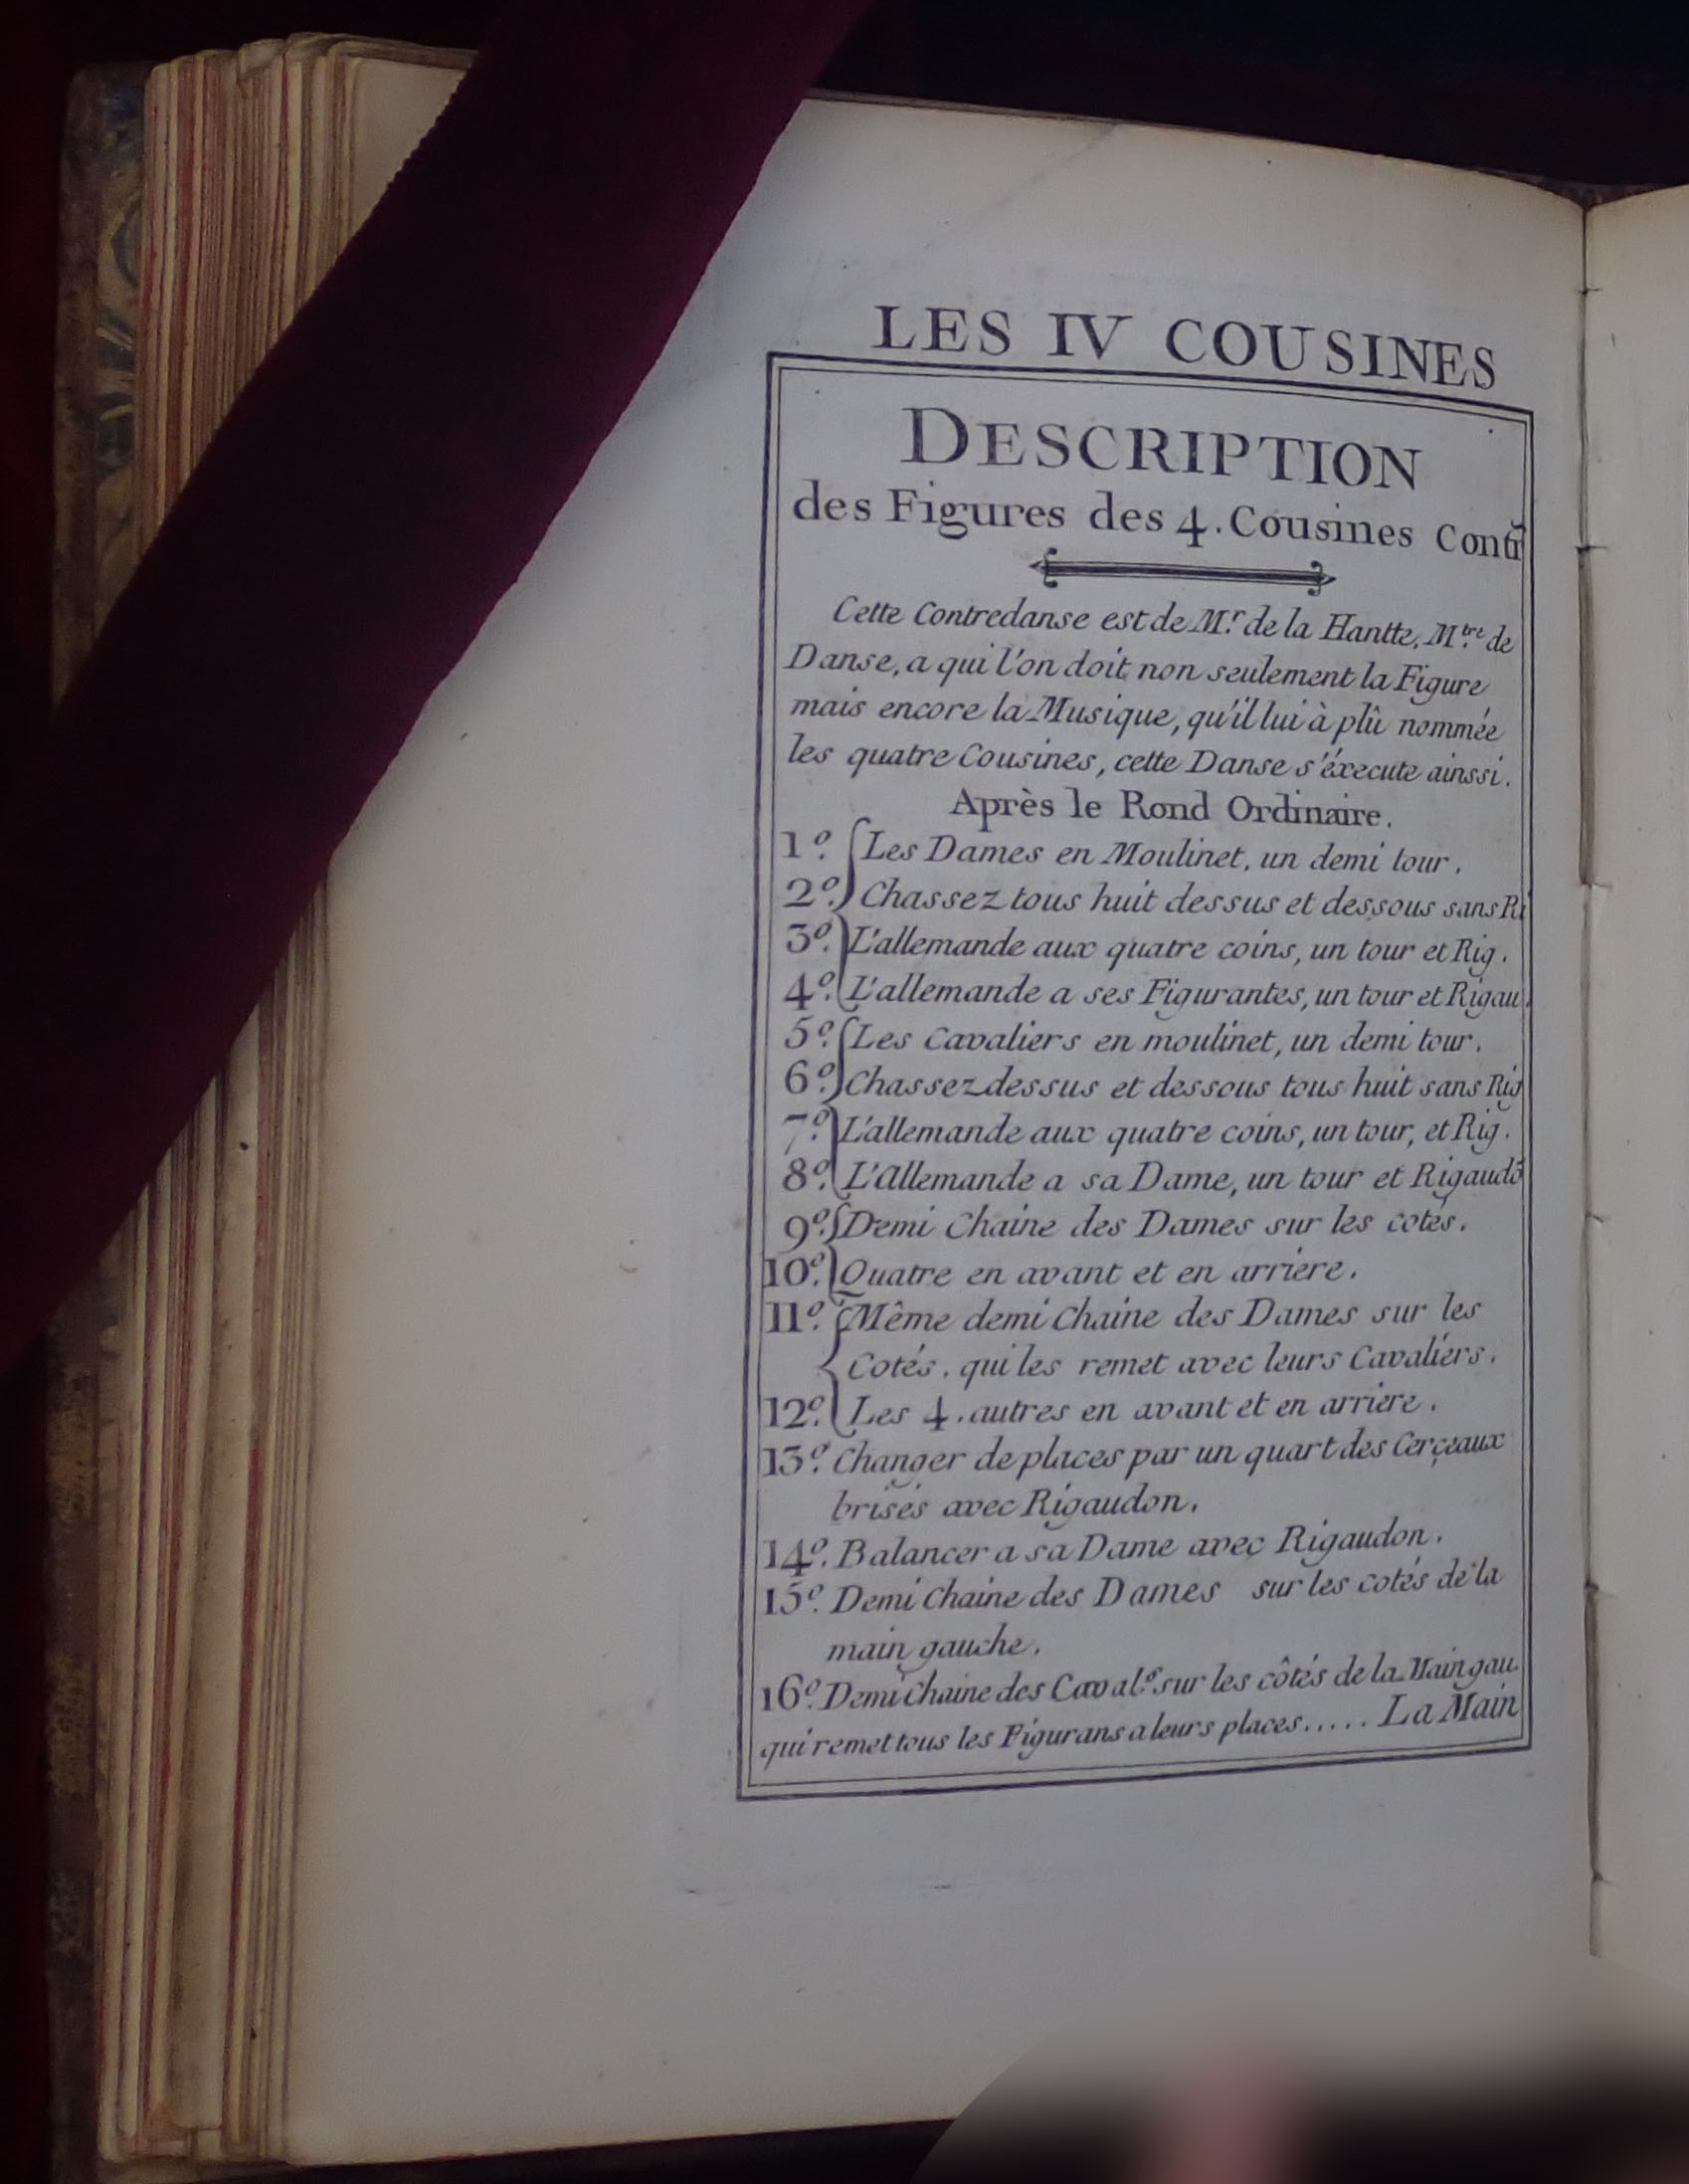 LES IV COUSINES
DESCRIPTION
des Figures des 4. Cousines Contr̃
Cette Contredanse est de M.r de la Hantte, M.tre de
Danse, a qui l'on doit non seulement la Figure
mais encore la Musique, qu'il lui à plû nommée
les quatre Cousines, cette Danse s'éxecute ainssi.
Après le Rond Ordinaire.
1.o Les Dames en Moulinet, un demi tour.
2.o Chassez tous huit dessus et dessous sans Ri
3.o L'allemande aux quatre coins, un tour et Rig.
4.o L'allemande a ses Figurantes, un tour et Rigau.
5.o Les Cavaliers en moulinet, un demi tour.
6.o Chassez dessus et dessous tous huit sans Rig
7.o L'allemande aux quatre coins, un tour, et Rig.
8.o L'allemande a sa Dame, un tour et Rigaudõ
9.o Demi Chaine des Dames sur les cotés.
10.o Quatre en avant et en arriere.
11.o Même demi Chaine des Dames sur les
Cotés, qui les remet avec leurs Cavaliers.
12.o Les 4. autres en avant et en arriere.
13.o Changer de places par un quart des Cerçeaux
brisés avec Rigaudon.
14.o Balancer a sa Dame aveç Rigaudon.
15.o Demi Chaine des Dames sur les cotés de la
main gauche.
16.o Demi Chaine des Caval.s sur les côtés de la Main gau
qui remet tous les Figurans a leurs places..... La Main